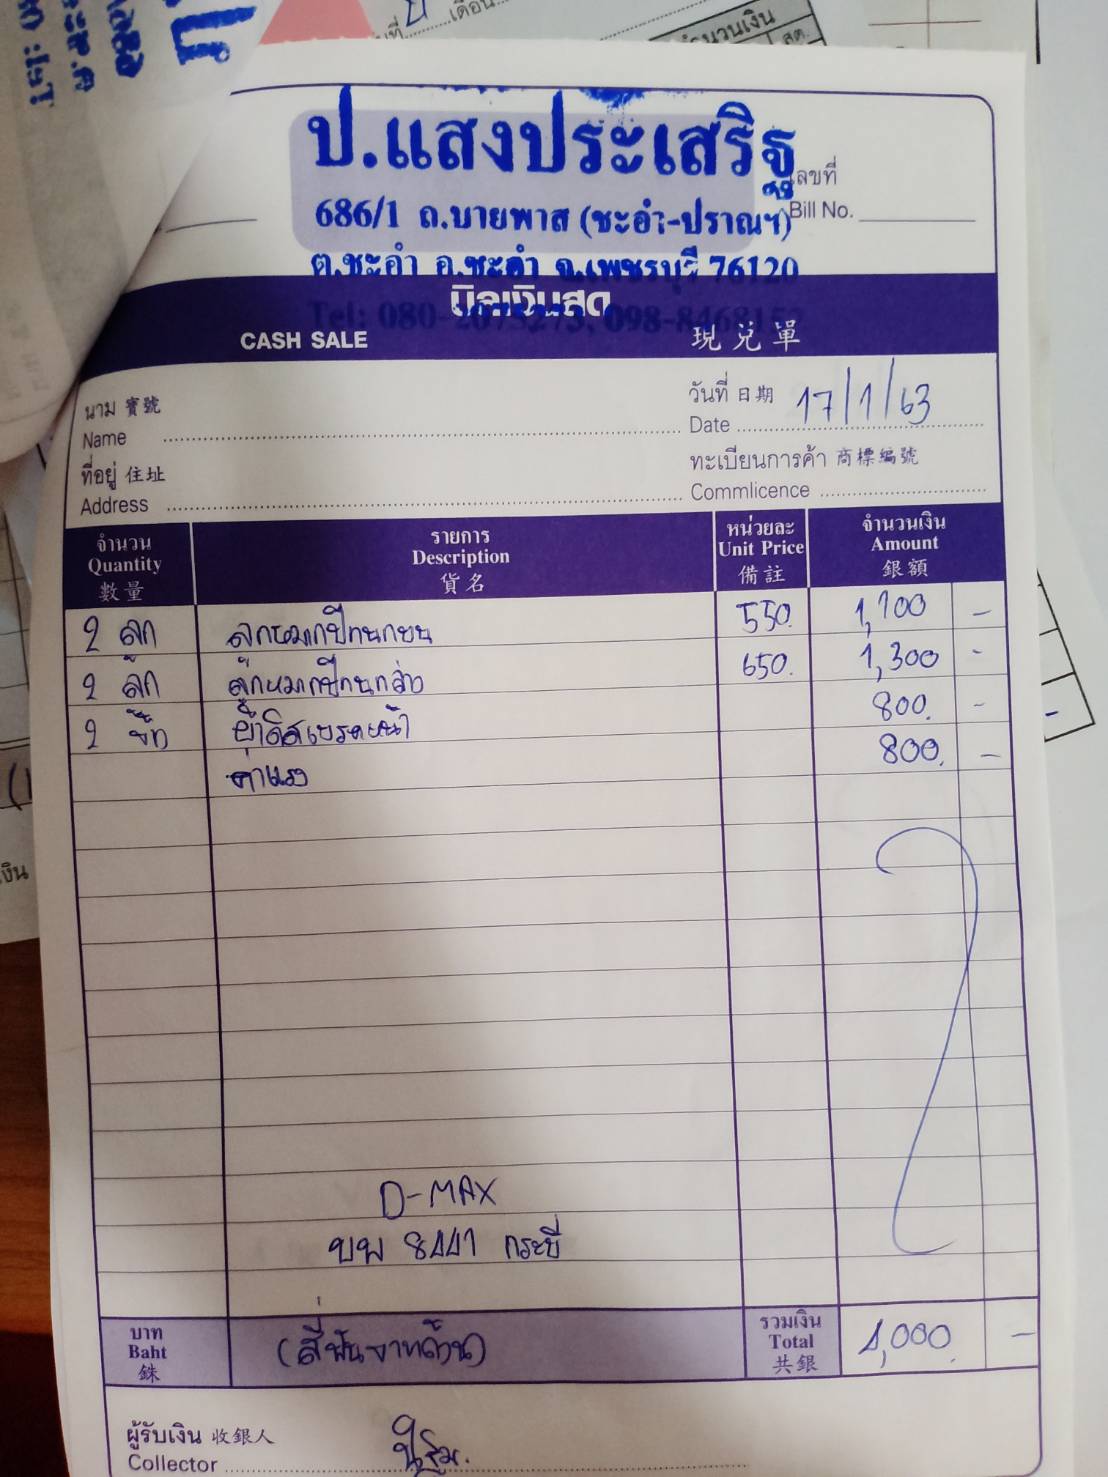 ที่ เดือน
จำนวนเงิน
สต.
ป.แสงประเสริฐ
686/1 ถ.บายพาส (ชะอำ-ปราณฯ)
ต.ชะอำ อ.ชะอำ จ.เพชรบุรี 76120
เลขที่
Bill No.
บิลเงินสด
CASH SALE 現兌單
นาม 寶號
Name
วันที่ 日期 17/1/63
Date
ที่อยู่ 住址
Address
ทะเบียนการค้า 商標編號
Commlicence
จำนวน รายการ หน่วยละ จำนวนเงิน
Quantity Description Unit Price Amount
數量 貨名 備註 銀額
2 ลูก ลูกหมากปีกนกบน 550. 1,100 -
2 ลูก ลูกหมากปีกนกล่าง 650. 1,300 -
2 ผ้าดิสเบรคหน้า 800. -
ค่าแรง 800. -
D-MAX
บพ 8447 กระบี่
บาท
Baht
銖
(สี่พันบาทถ้วน)
รวมเงิน
Total
共銀
4,000. -
ผู้รับเงิน 收銀人
Collector